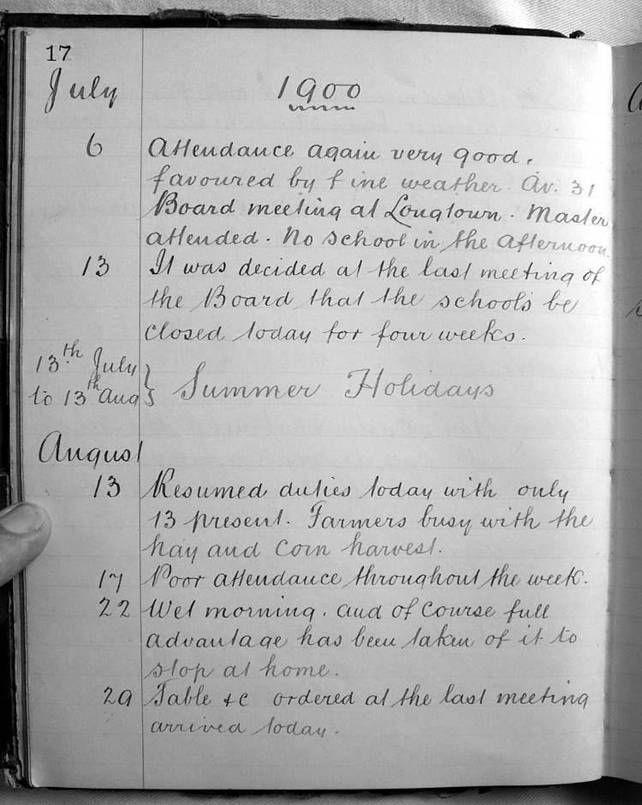 17
July 1900
6 Attendance again very good,
favoured by fine weather. Av. 31
Board meeting at Longtown. Master
attended. No school in the afternoon.
13 It was decided at the last meeting of
the Board that the schools be
closed today for four weeks.
13th July
to 13th Aug } Summer Holidays
August
13 Resumed duties today with only
13 present. Farmers busy with the
hay and corn harvest.
17 Poor attendance throughout the week.
22 Wet morning. and of course full
advantage has been taken of it to
stop at home.
29 Table &c ordered at the last meeting
arrived today.